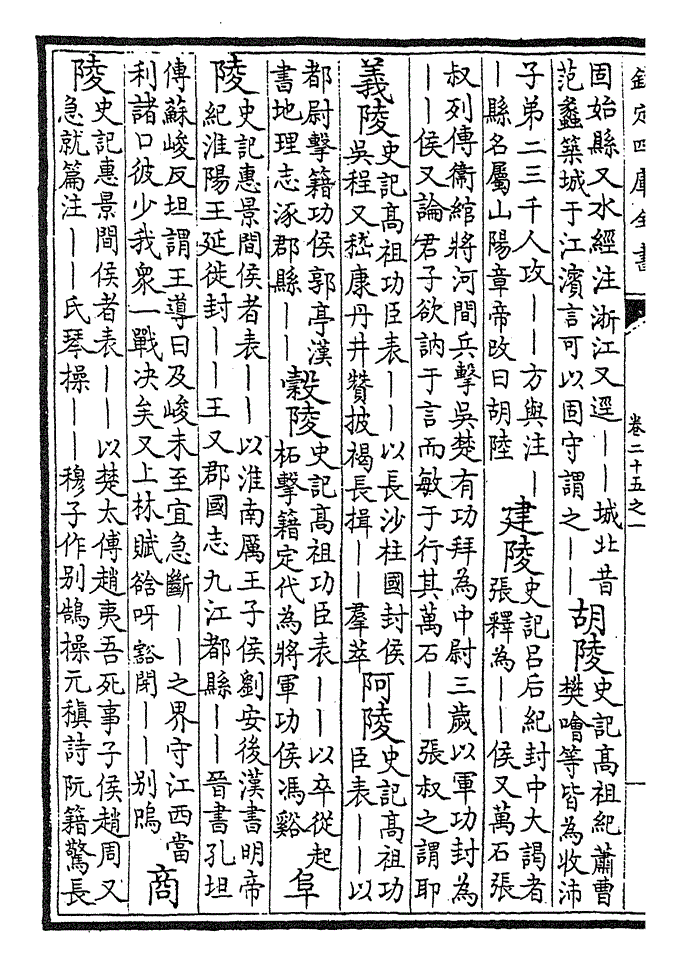 欽定四庫全書
卷二十五之一
固始縣又水經注浙江又逕｜｜城北昔
范蠡築城于江濱言可以固守謂之｜｜
胡陵
史記髙祖紀蕭曹
樊噲等皆為收沛
子弟二三千人攻｜｜方與注｜
｜縣名屬山陽章帝改曰胡陸
建陵
史記吕后紀封中大謁者
張釋為｜｜侯又萬石張
叔列傳衞綰將河間兵擊吳楚有功拜為中尉三歲以軍功封為
｜｜侯又論君子欲訥于言而敏于行其萬石｜｜張叔之謂耶
義陵
史記髙祖功臣表｜｜以長沙柱國封侯
吳程又嵇康丹井贊披褐長揖｜｜羣萃
阿陵
史記髙祖功
臣表｜｜以
都尉擊籍功侯郭亭漢
書地理志涿郡縣｜｜
穀陵
史記髙祖功臣表｜｜以卒從起
柘擊籍定代為將軍功侯馮谿
阜
陵
史記惠景間侯者表｜｜以淮南厲王子侯劉安後漢書明帝
紀淮陽王延徙封｜｜王又郡國志九江郡縣｜｜晉書孔坦
傳蘇峻反坦謂王導曰及峻未至宜急斷｜｜之界守江西當
利諸口彼少我衆一戰决矣又上林賦谽呀豁閕｜｜别隝
商
陵
史記惠景間侯者表｜｜以楚太傅趙夷吾死事子侯趙周又
急就篇注｜｜氏琴操｜｜穆子作别鵠操元稹詩阮籍驚長